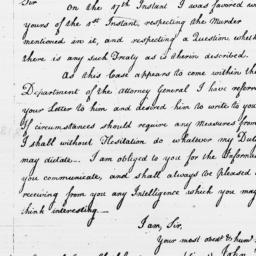 Sir
On the 17th Instant I was favored w
yours of the 2st Instant, respecting the Murder
mentioned in it, and respecting a Question whethe
there is any such Treaty as is therein described.
As this Case appears to come within the
Department of the Attorney General I have referr
your Letter to him and desired him to write to you
If circumstances should require any Measures from
I shall without Hesitation do whatever my Duty
may dictate. I am obliged to you for the Informa
you communicate, and shall always be pleased
receiving from you any Intelligence which you may
think interesting
I am, Sir,
Your most obedt & hum
John